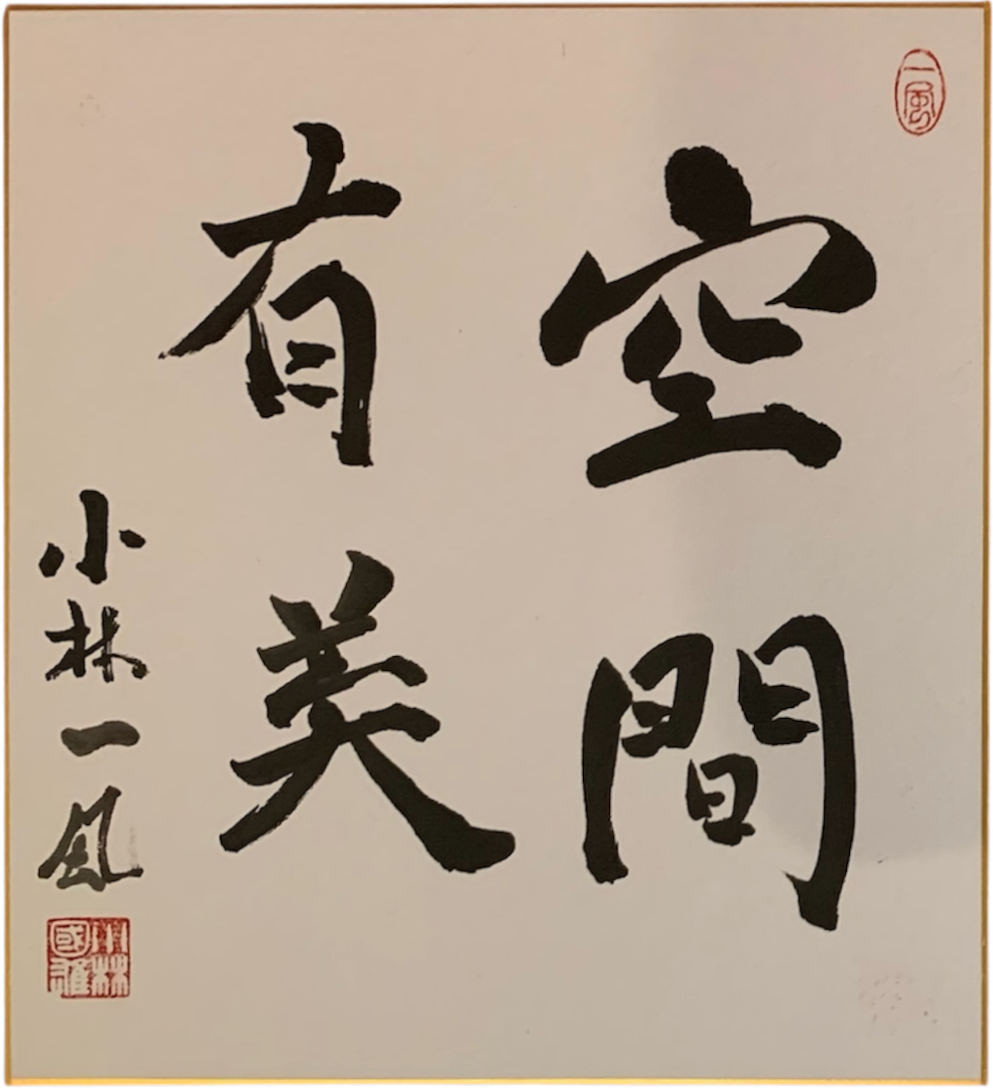 一風
空間
有美
小林一風
小林
國雄